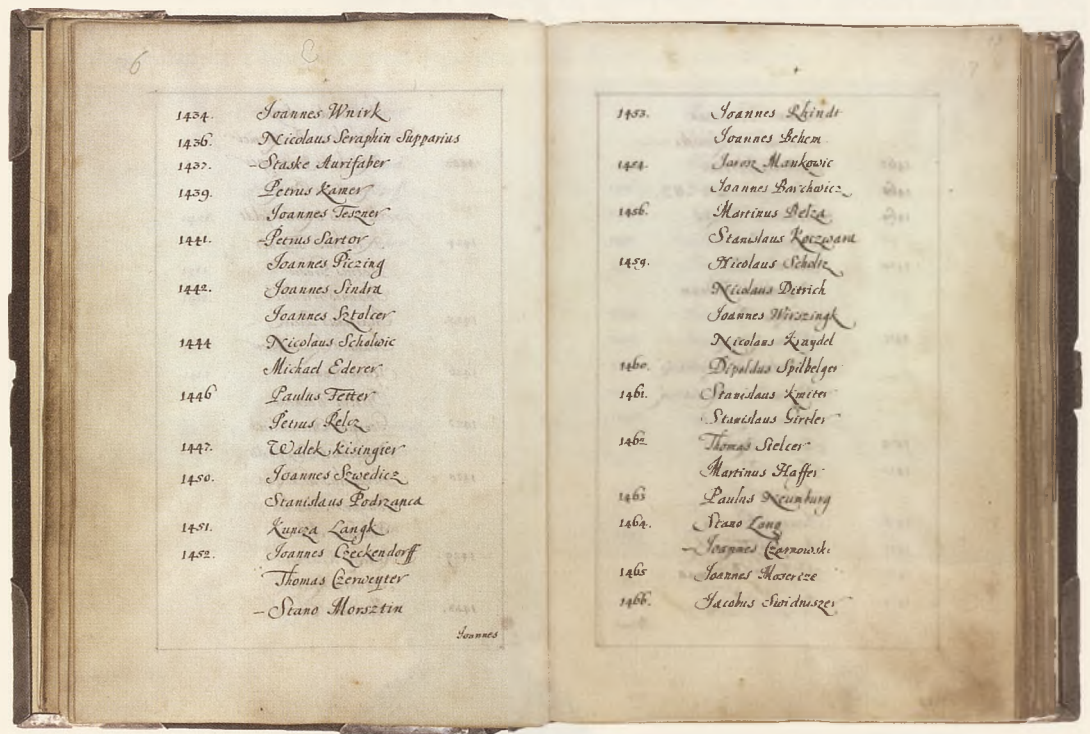 6
1434. Joannes Wnirk
1436. Nicolaus Seraphin Supparius
1437. -Staske Aurifaber
1439. Petrus Kamer
Joannes Teszner
1441. -Petrus Sartor
Joannes Piczing
1442. Joannes Sindra
Joannes Sztolcer
1444 Nicolaus Scholwic
Michael Ederer
1446 Paulus Tetter
Petrus Relcz
1447. Walek Kisingier
1450. Joannes Szwedicz
Stanislaus Podrzanca
1451. Kuncza Langk
1452. Joannes Czeckendorff
Thomas Czerweyter
-Stano Morsztin
Joannes
7
1453. Joannes Rhindt
Joannes Behem
1454. Mankowic
Joannes Barchwicz
1456. Martinus Belza
Stanislaus Koczwara
1459. Nicolaus Scholtz
Nicolaus Ditrich
Joannes Wirszingk
Nicolaus Kraydel
1460. Dipoldus Spilbelger
1461. Stanislaus Kmiter
Stanislaus Girtler
1462 Thomas Stelcer
Martinus Haffer
1463 Paulus Neumburg
1464. Stano Lang
-Joannes Czarnowski
1465 Joannes
1466. Jacobus Swidniszer